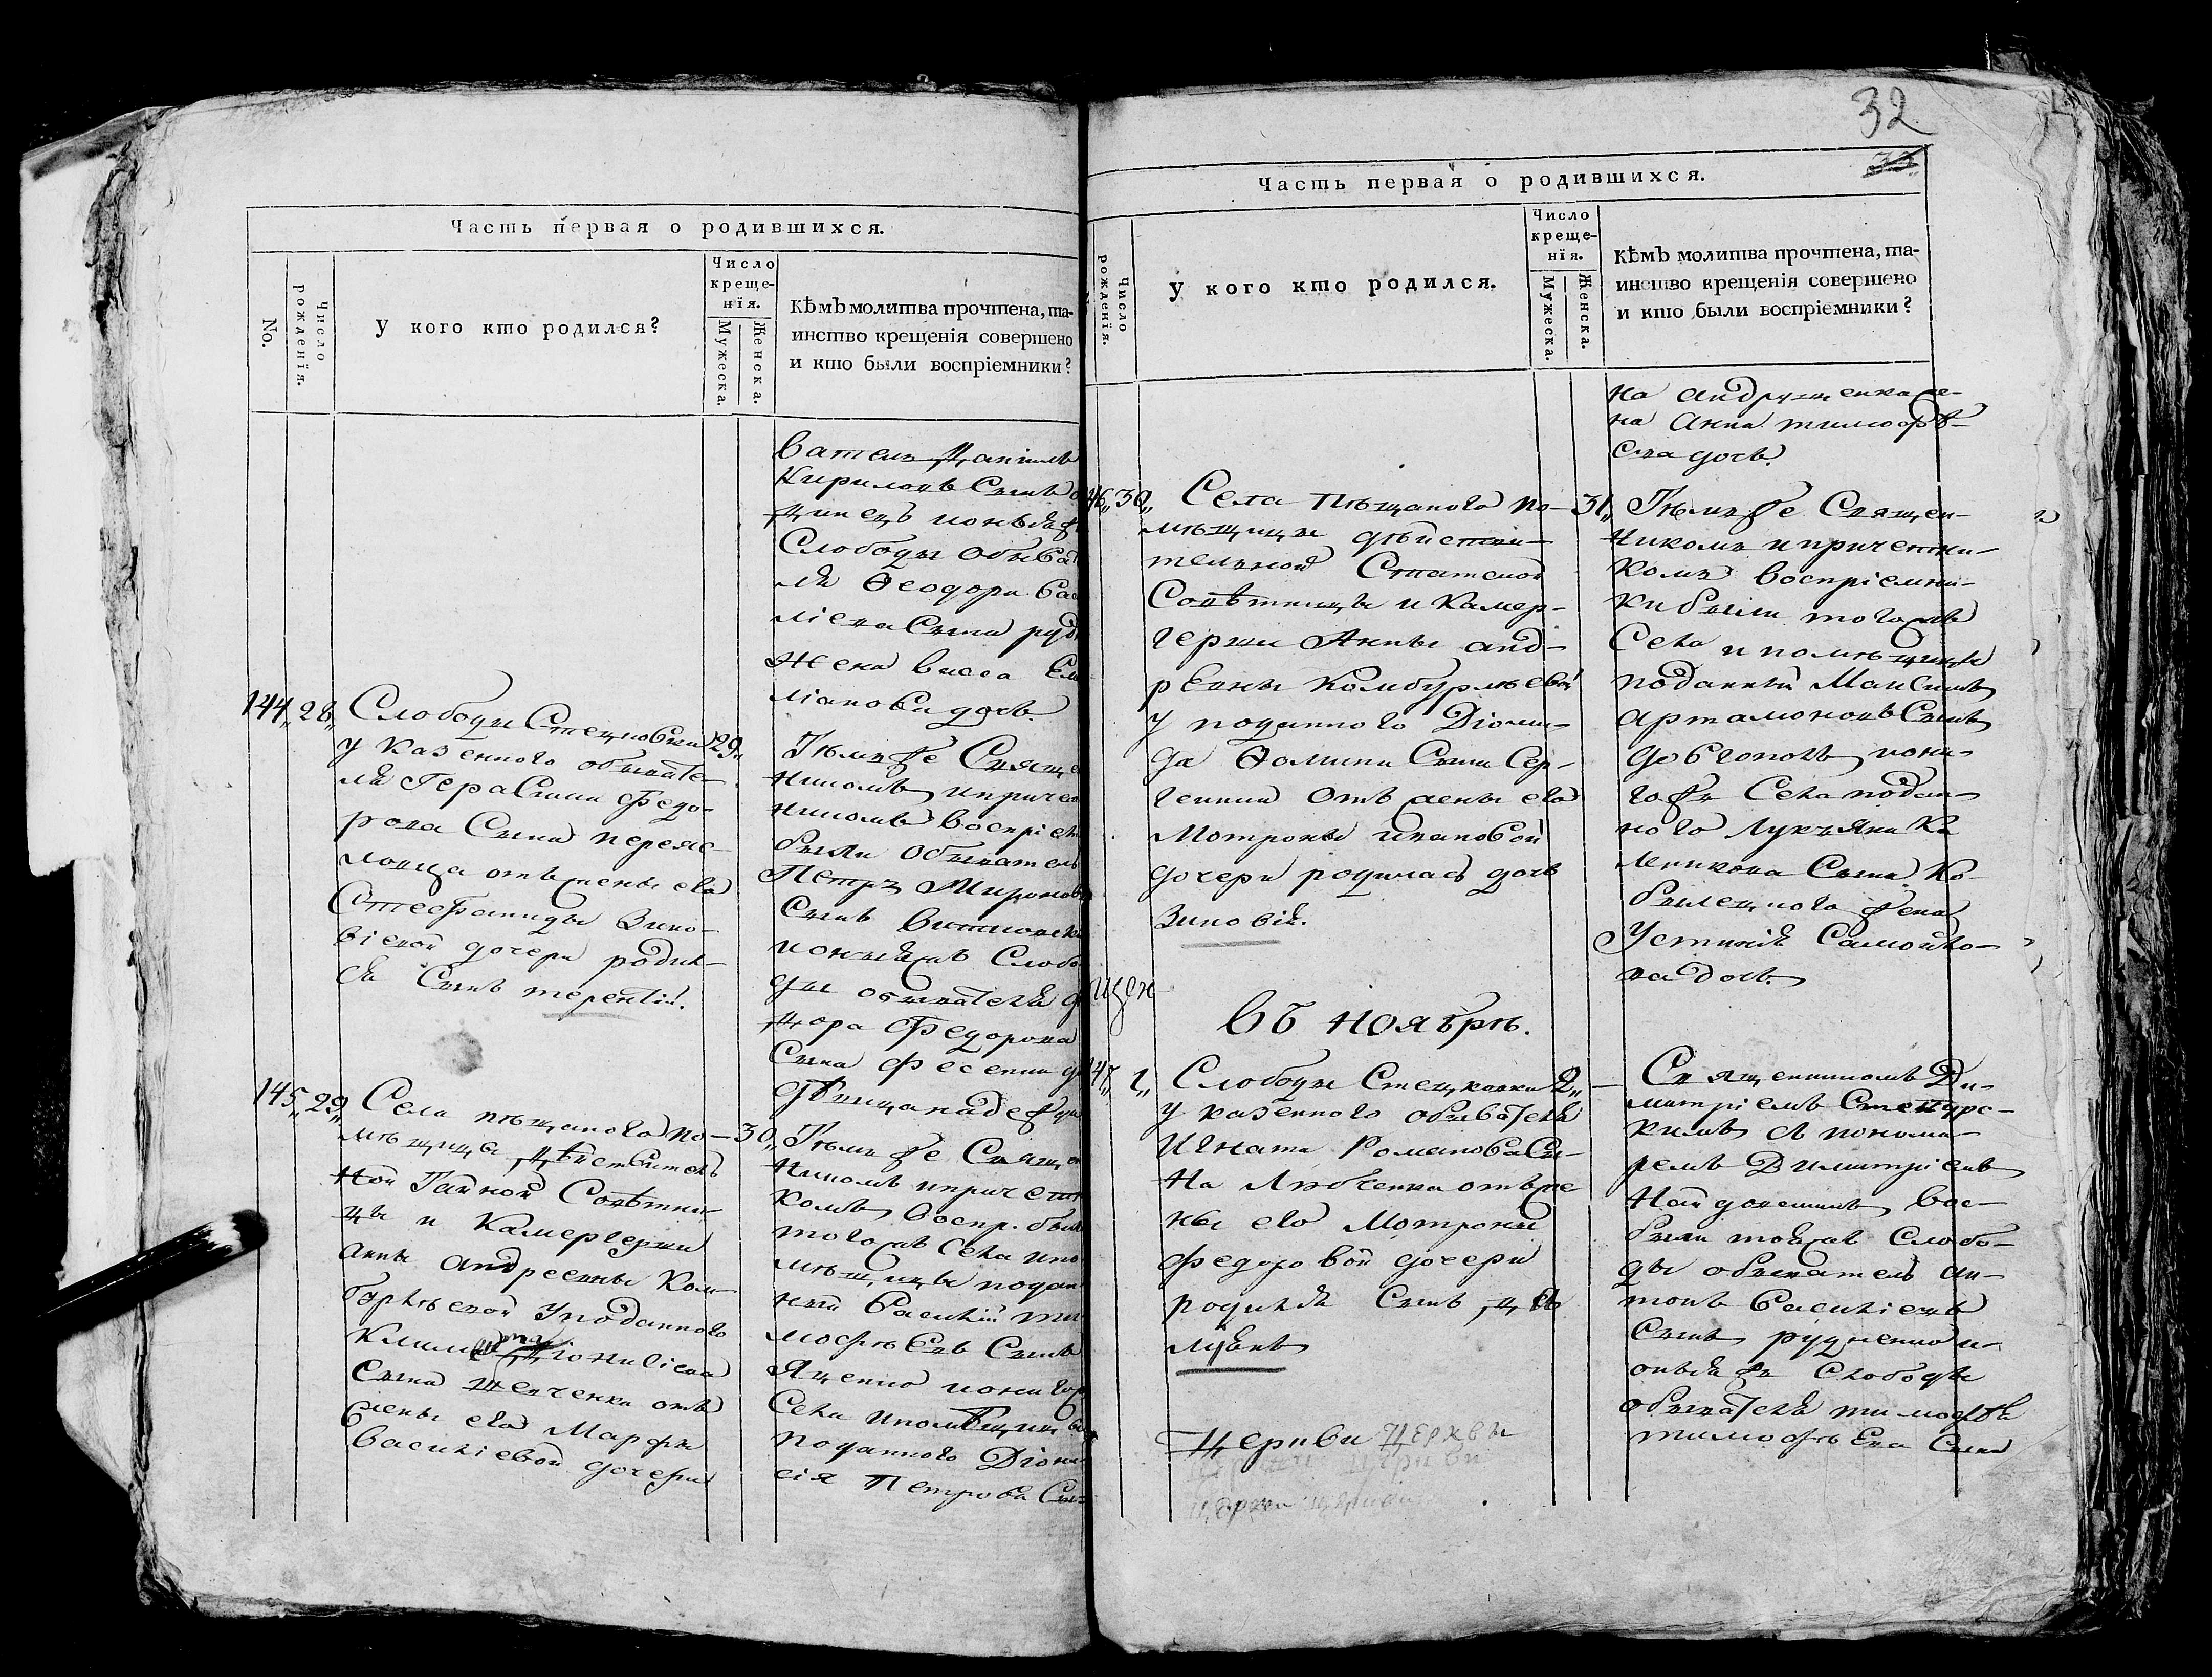 Часть первая о родившихся.
No.
Число рожденїя.
У кого кто родился?
Число
креще-
нїя.
Мужеска.
Женска.
Кѣмъ молитва прочтена, та-
инство крещенія совершено
и кто были воспріемники?
ватель Даніилъ
Кириловъ Сынъ
Слободы Обыва
ля Ѳеодора Ва
ліева Сына
жена Васса Ем
ліанова дочь.
144„ 28„ Слободы Стецковки 29„
у казеннаго обывате-
ля Герасима Федо-
рова Сына переяс-
ловца отъ жены его
Стефаниды Зино-
віевой дочери родил-
ся Сынъ терентій.
Тѣмъ же Свяще
никомъ и приче
никомъ воспріем
были Обыватель
Петръ Миронов
Сынъ
и онъіяжъ Слобо
ды обывателя
дора Федорова
Сына Фесенки
дѣвица надежда
145„ 29„ Села пѣщаного по- 30„
мѣщицы Дѣйствитель
ной Тайной Совѣтни-
цы и Камергерши
анны андреевны Ком-
бурлѣевой у подданного
Климента Діонисіева
Сына Шевченка отъ
жены его Марфы
Василіевой дочери
Тѣмъ же Свяще
никомъ и причетн
комъ воспр. были
тогожъ Села и по
мѣщицы подан
ный Василій ти
мофѣевъ Сынъ
Яценко и онаго ж
Села и помѣщицы
поданного Діони
сія Петрова Сы
32
Часть первая о родившихся.
Число рожденїя.
У кого кто родился.
Число
креще-
нїя.
Мужеска.
Женска.
Кѣмъ молитва прочтена, та-
инство крещенія совершено
и кто были воспріемники?
на андрущенка же-
на Анна тимофѣ-
ева дочь.
46„ 30„ Села Пѣщаного по- 31„
мѣщицы дѣйстви-
тельной Статской
Совѣтницы и Камер-
герши Анны анд-
рѣевны Комбурлѣевой
у поданного Діоми-
да Ѳомина Сына Сер-
гейкина Отъ жены его
Мотроны ивановой
дочери родилась дочь
Зиновія.
Тѣмъ же Священ-
никомъ и причетни-
комъ воспріемни-
ки были тогожъ
Села и помѣщицы
поданный Максимъ
артамоновъ Сынъ
Довгополъ и она-
го же Села подан-
ного Лукъяна Ка
леникова Сына Ко-
былецкого жена
Устинія Самойло-
ва дочь.
въ ноябрѣ.
47„ 1„ Слободы Стецковки 2„
у казенного обывателя
Игната Романова Сы-
на Любченка отъ же
ны его Мотроны
федоровой дочери
родился Сынъ, да
Священникомъ Ди-
митріемъ Стенурс-
кимъ с понома-
ремъ Димитріемъ
Найдовскимъ вос-
были тояжъ Слобо-
ды обыватель ан-
тонъ Василіевъ
Сынъ рудченко и
оныя же Слободы
обывателя тимофѣя
тимофѣева Сына
Церкви Церкви